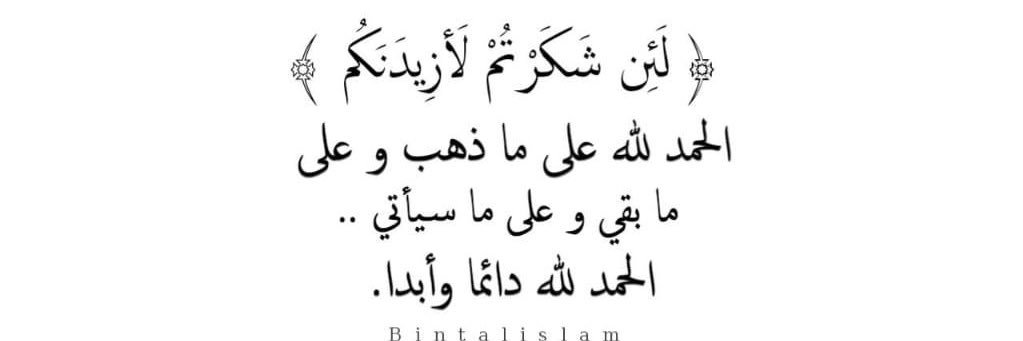 ﴿ لَئِن شَكَرْتُمْ لَأَزِيدَنَكُم ﴾
الحمد لله على ما ذهب و على
ما بقي و على ما سيأتي ..
الحمد لله دائما وأبدا.
Bintalislam